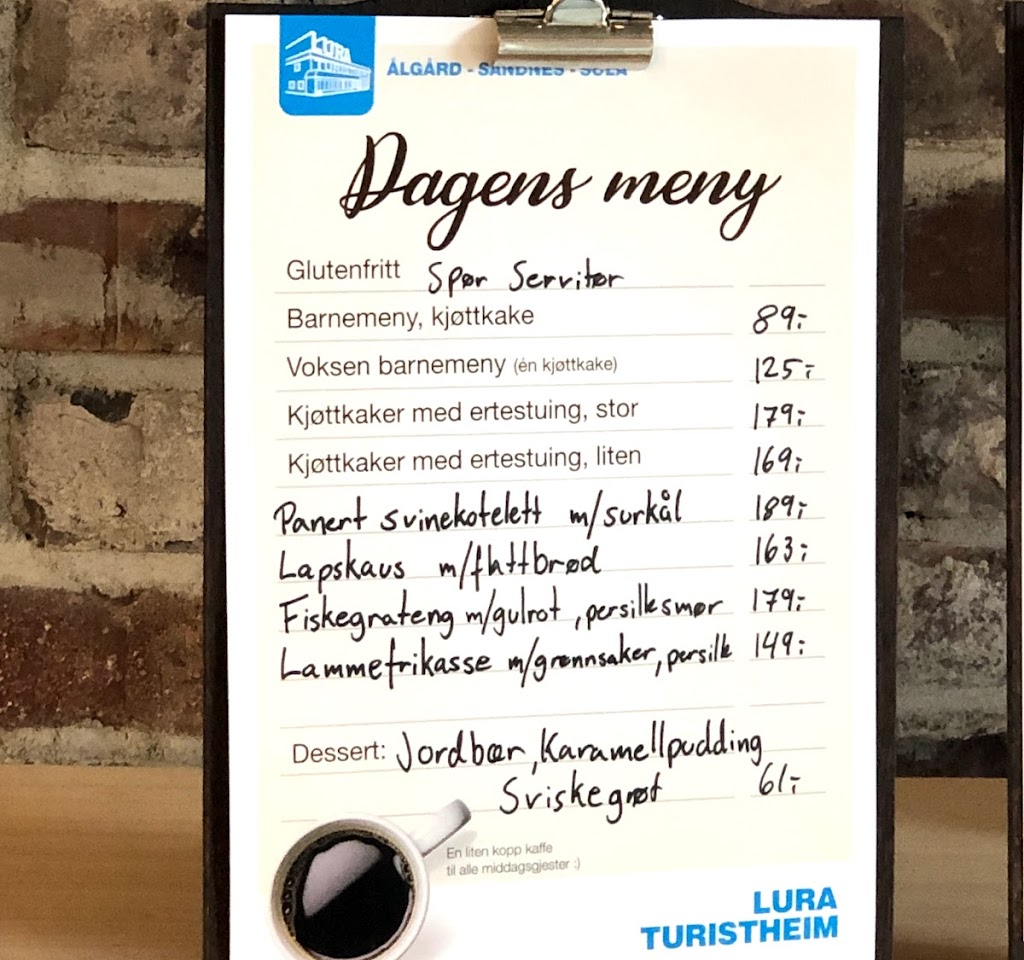 LURA
ÅLGÅRD - SANDNES - SOLA
Dagens meny
Glutenfritt Spør Servitør
Barnemeny, kjøttkake 89:-
Voksen barnemeny (én kjøttkake) 125:-
Kjøttkaker med ertestuing, stor 179:-
Kjøttkaker med ertestuing, liten 169:-
Panert svinekotelett m/surkål 189:-
Lapskaus m/flattbrød 163:-
Fiskegrateng m/gulrot, persillesmør 179:-
Lammefrikasse m/grønnsaker, persille 149:-
Dessert: Jordbær, Karamellpudding
Sviskegrøt 61:-
En liten kopp kaffe
til alle middagsgjester :)
LURA
TURISTHEIM